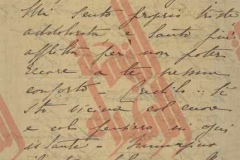 Mi sento proprio triste
addolorata e tanto più
afflitta per non poter
recare a te nessun
conforto - Credilo: ti
sto vicina col cuore
e col pensiero in ogni
istante -